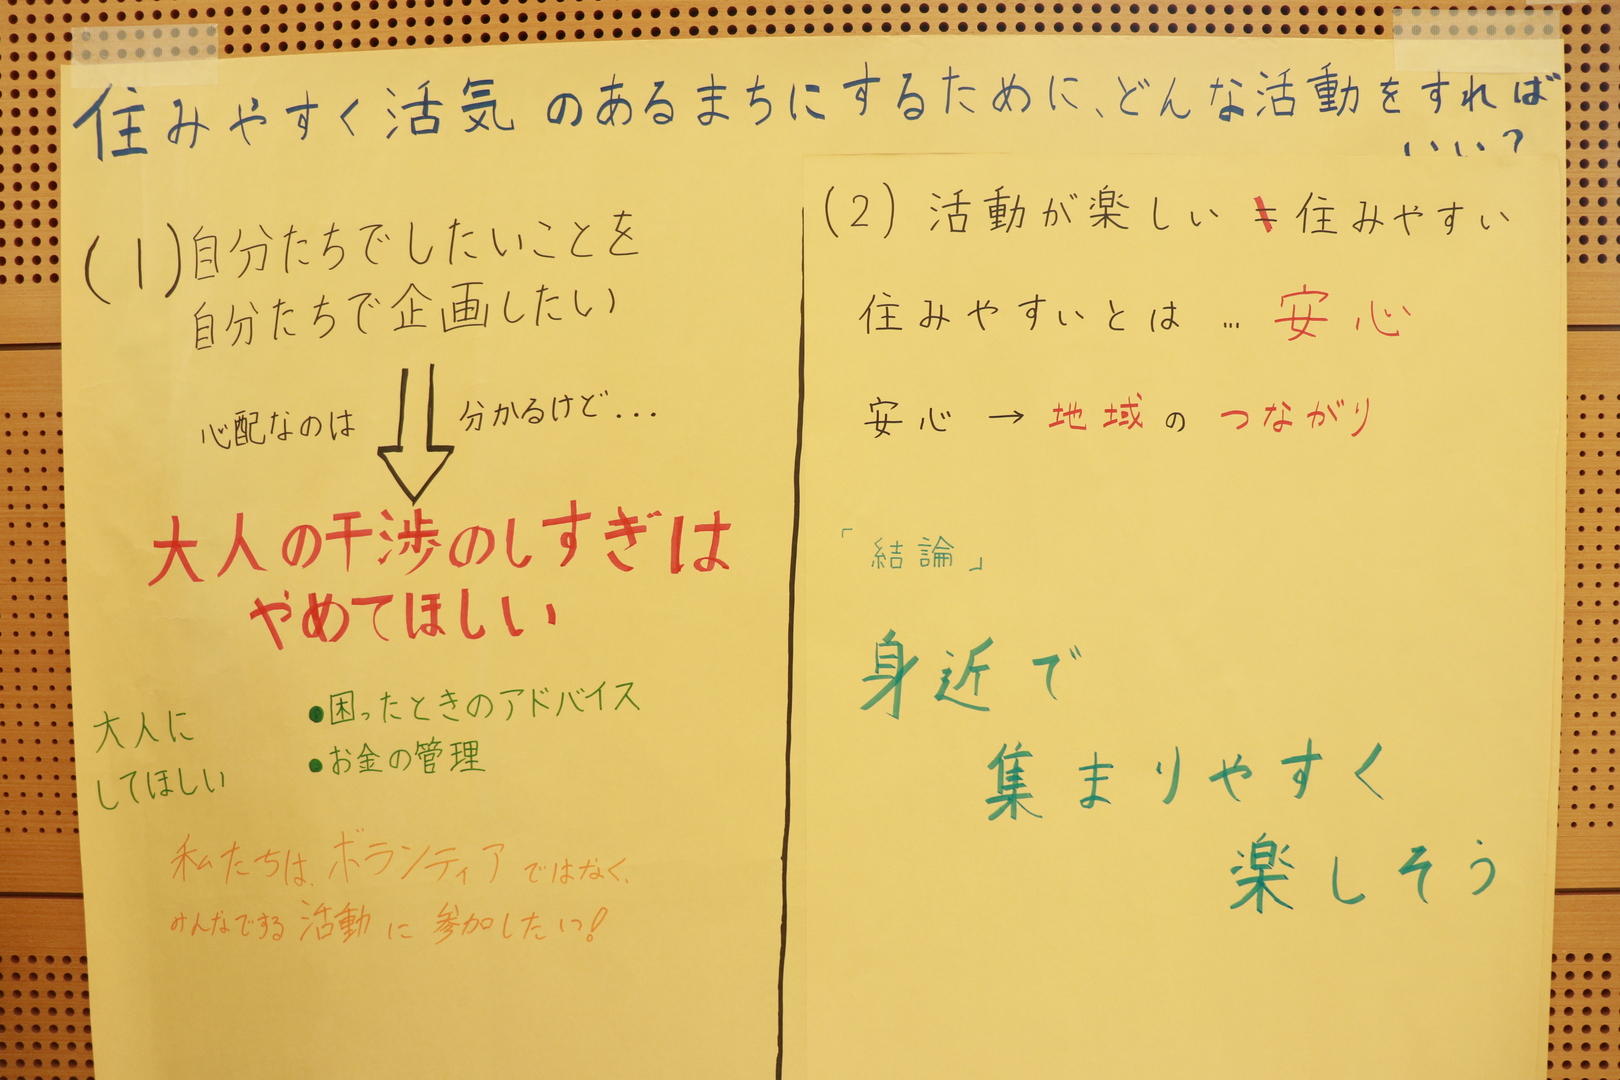 住みやすく活気のあるまちにするために、どんな活動をすれば
いい?
(1)自分たちでしたいことを
自分たちで企画したい
心配なのは
分かるけど...
大人の干渉のしすぎは
やめてほしい
大人に
してほしい
●困ったときのアドバイス
●お金の管理
私たちは、ボランティアではなく、
みんなでする活動に参加したいっ!
(2)活動が楽しい≠住みやすい
住みやすいとは…安心
安心→地域のつながり
「結論」
身近で
集まりやすく
楽しそう